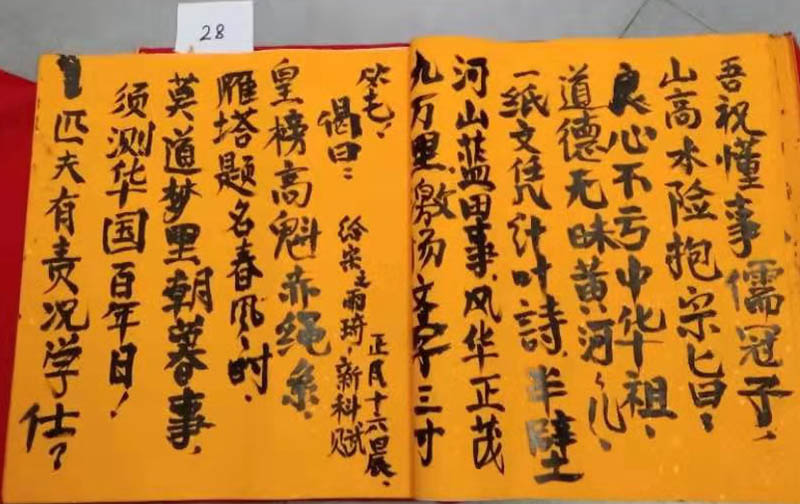 28
吾祝懂事儒冠子、
山高水险抱宗匕曰：
良心不亏中华祖、
道德无昧黄河儿、
一纸文凭计叶詩、半壁
河山蓝田事、风华正茂
九万里、激扬文字三寸
毛！
偈曰：
正月十六日晨、
给宗之雨琦，新科赋
皇榜高魁赤绳系
雁塔题名春风时、
莫道梦里朝暮事、
须测华国百年日！
匹夫有责况学仕？